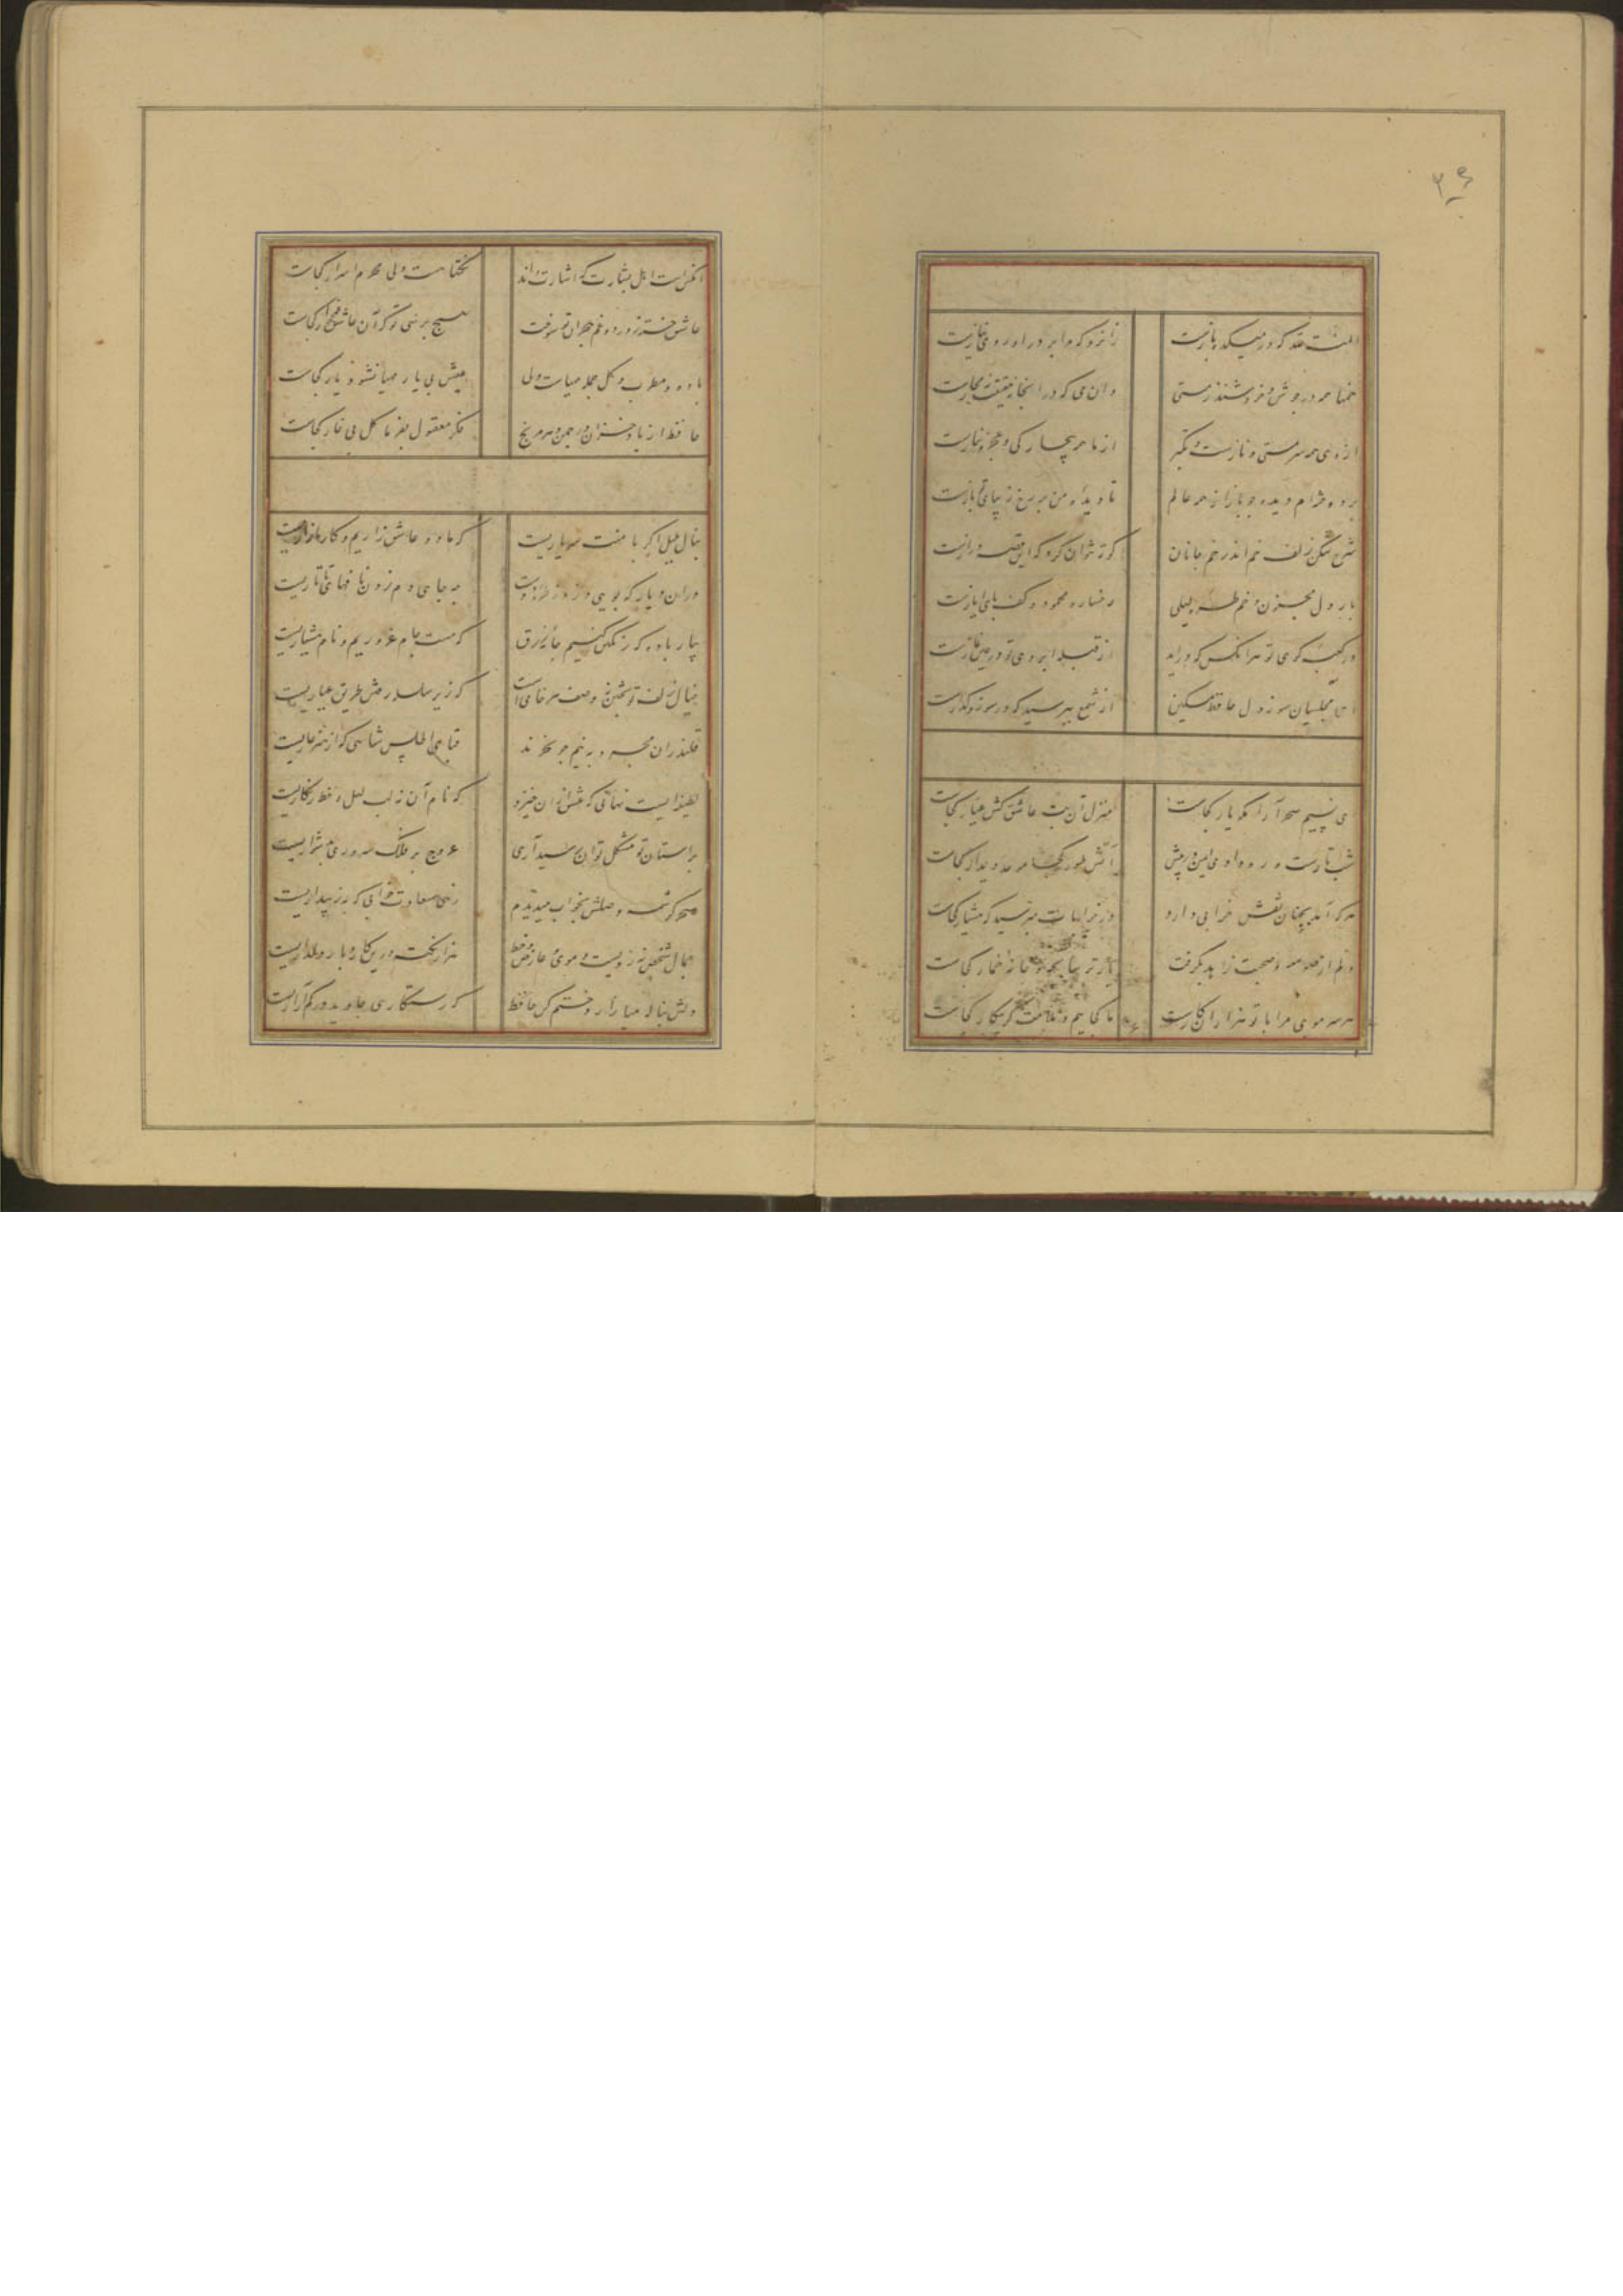 ۳۶
المنة لله که در میکده بازست
زانرو که مرا بر در او روی نیازست
خمها همه در جوش و خروشند ز مستی
وان می که در انجا حقیقت نه مجازست
از وی همه مستی و نازست و تکبر
از ما همه بیچارگی و عجز و نیازست
بر دوخته‌ام دیده چو باز از همه عالم
تا دیده من بر رخ زیبای تو بازست
شرح شکن زلف خم اندر خم جانان
کوته نتوان کرد که این قصه درازست
بار دل مجنون و خم طره لیلی
رخساره محمود و کف پای ایازست
در کعبه کوی تو هر انکس که دراید
از قبله ابروی تو در عین نمازست
ای مجلسیان سوز دل حافظ مسکین
از شمع بپرسید که در سوز و گدازست
ای نسیم سحر آرامگه یار کجاست
منزل آن بت عاشق کش عیار کجاست
شب تارست و ره وادی ایمن در پیش
آتش طور کجا موعد دیدار کجاست
هر که آمد بجهان نقش خرابی دارد
در خرابات بپرسید که هشیار کجاست
دلم از صومعه و صحبت زاهد بگرفت
یار ترسا بچه و خانه خمار کجاست
هر سر موی مرا با تو هزاران کارست
ما کجاییم و ملامت گر بیکار کجاست
انکس است اهل بشارت که اشارت داند
نکتها هست ولی محرم اسرار کجاست
عاشق خسته ز درد و غم هجران تو سوخت
هیچ پرسی تو که آن عاشق غمخوار کجاست
باده و مطرب و گل جمله مهیاست ولی
عیش بی یار مهیا نشود یار کجاست
حافظ از باد خزان در چمن دهر مرنج
فکر معقول بفرما گل بی خار کجاست
بنال بلبل اگر با منت سر یاریست
که ما دو عاشق زاریم و کار ما زاریست
دران دیار که بویی وزد ز طره دوست
چه جای دم زدن نافهای تاتاریست
بیار باده که رنگین کنیم جامه زرق
که مست جام غروریم و نام هشیاریست
خیال زلف تو پختن نه وصف هر خامی است
که زیر سلسله رفتن طریق عیاریست
قلندران مجرد به نیم جو نخرند
قبای اطلس شاهی که از هنر عاریست
لطیفه ایست نهانی که عشق ازان خیزد
که نام آن نه لب لعل و خط زنگاریست
بر استان تو مشکل توان رسید آری
عروج بر فلک سروری بدشواریست
سحر کرشمه وصلش بخواب میدیدم
زهی سعادت خوابی که به ز بیداریست
جمال شخص نه رویست و موی و عارض و خط
هزار نکته درین کار و بار دلداریست
دلش بناله میازار و ختم کن حافظ
که رستگاری جاوید در کم آزاریست